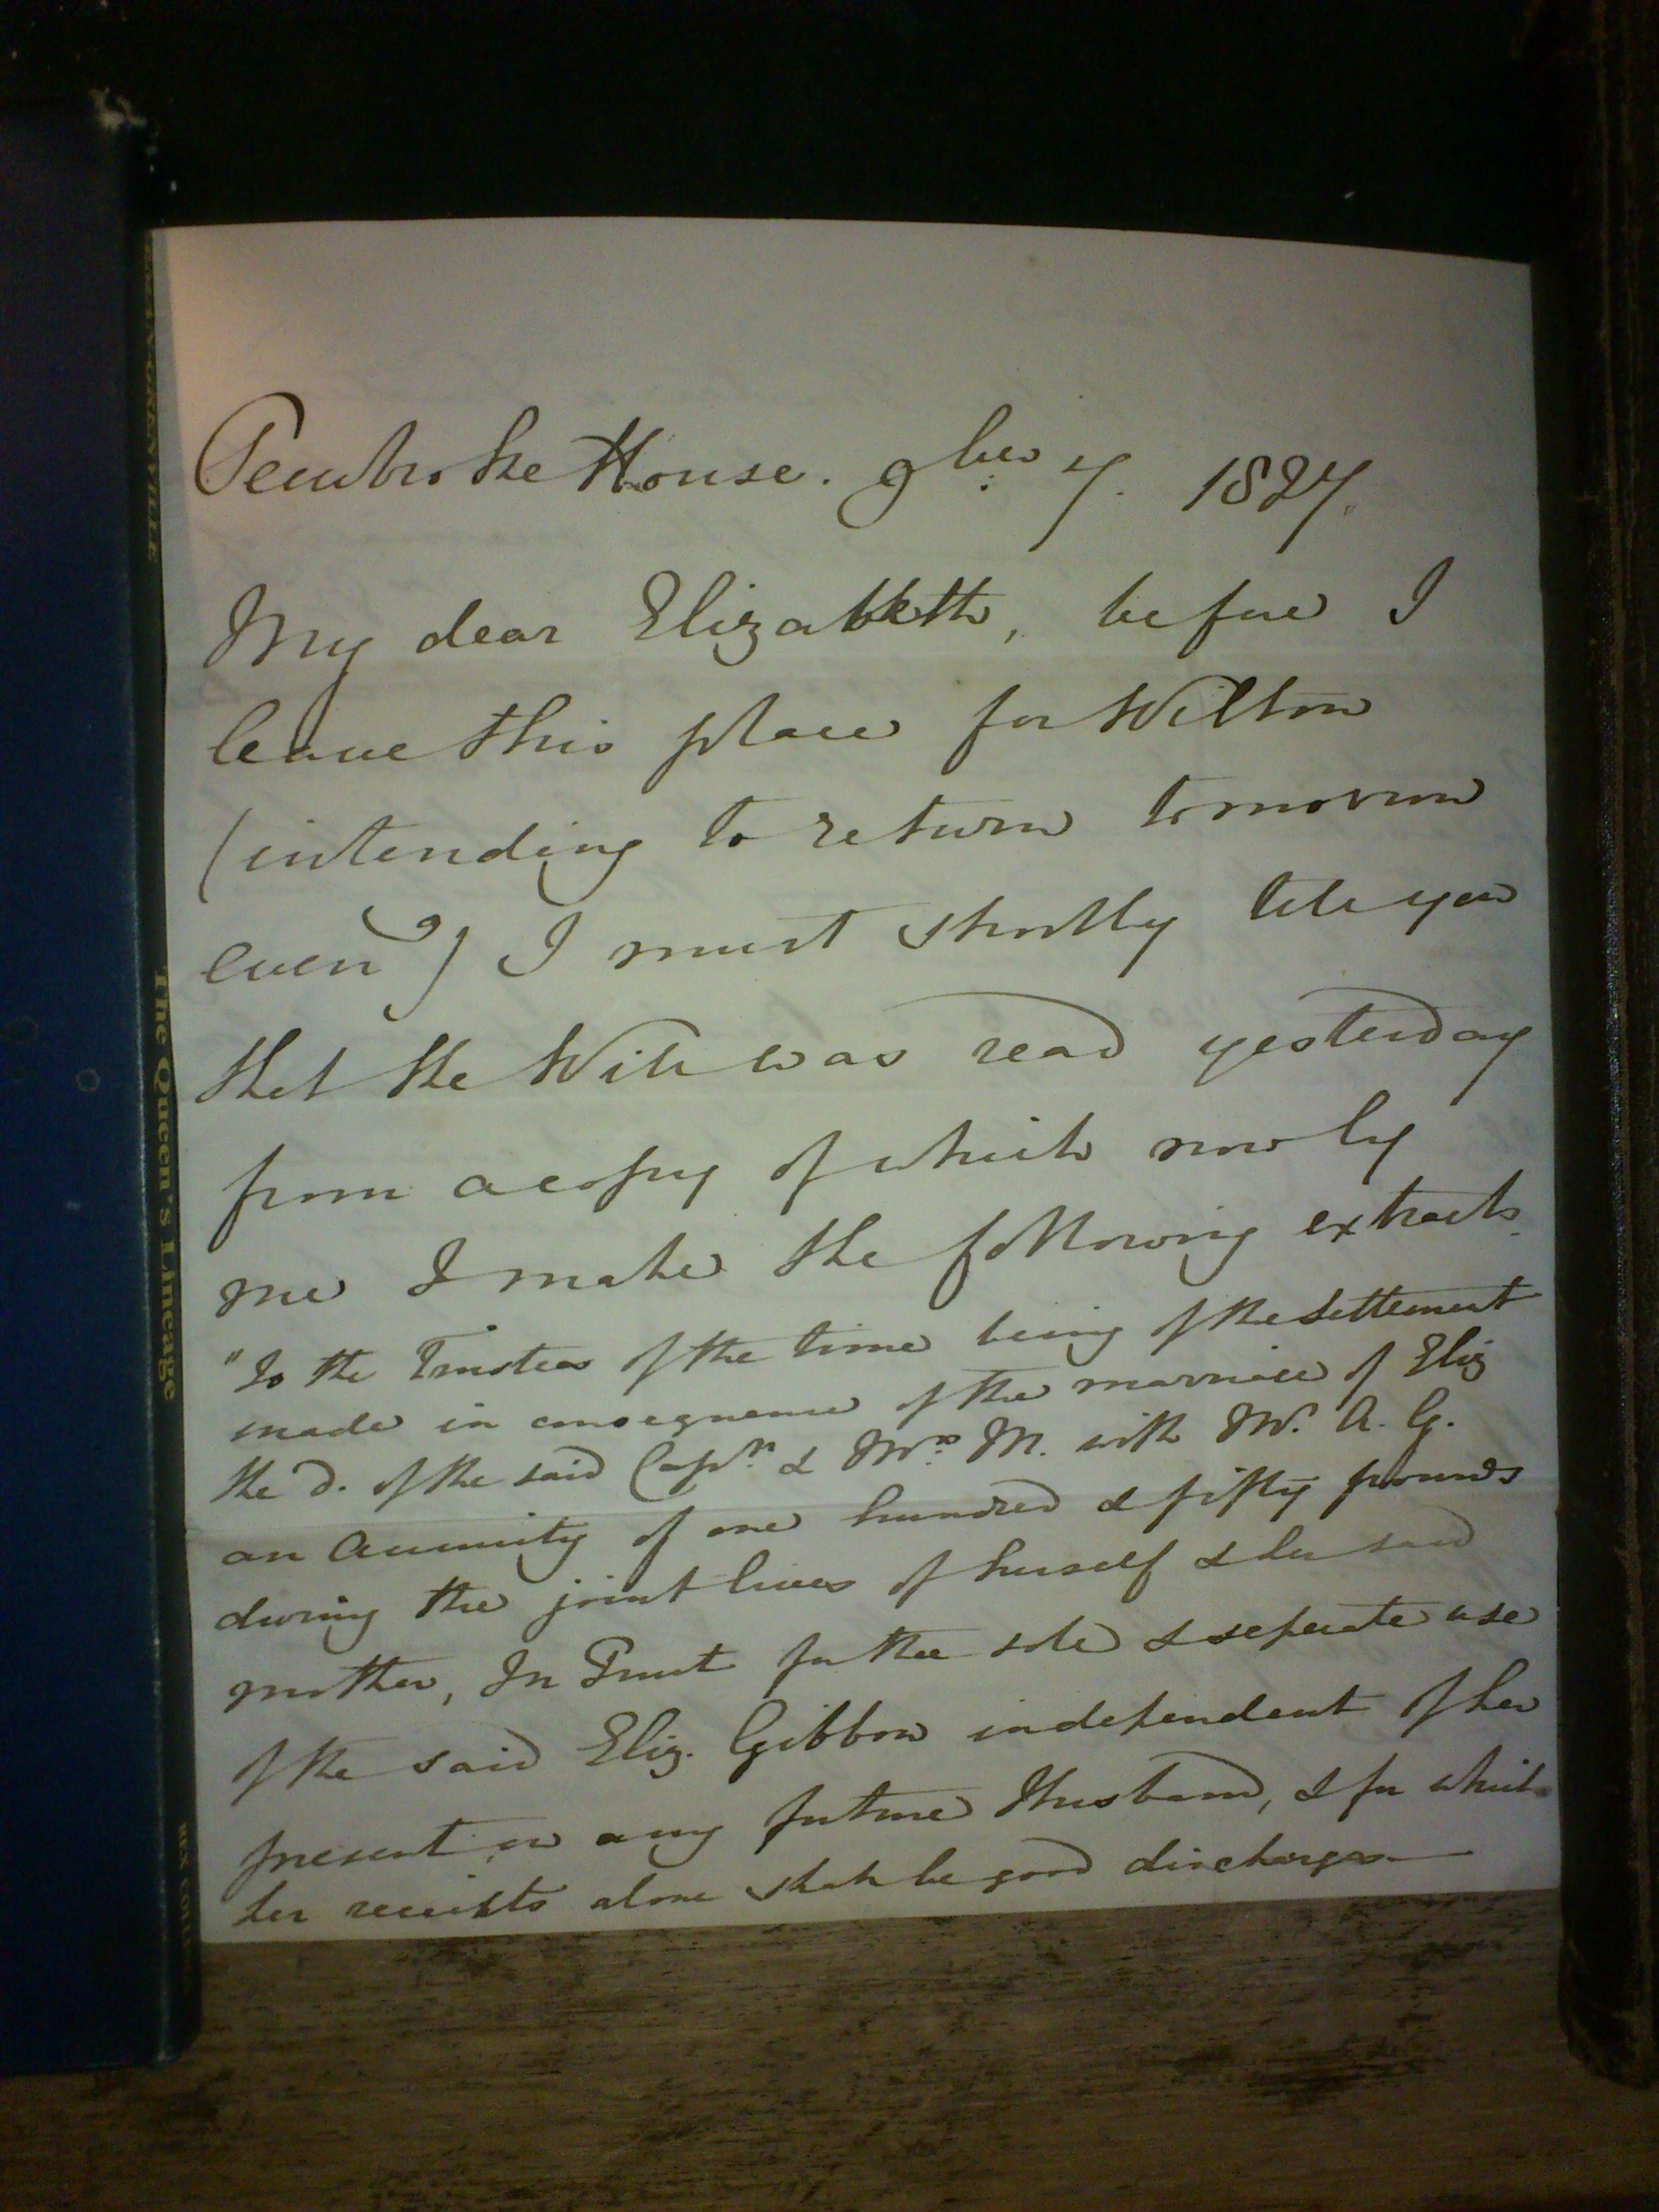 Pembroke House. 9ber 7. 1827.
My dear Elizabeth, before I
leave this place for Wilton
(intending to return tomorrow
eveng) I must shortly tell you
that the Will was read yesterday
from a copy of which now by
me I make the following extracts.
"To the Trustees of the time being of the Settlement
made in consequence of the marriage of Eliz
the d. of the said Capn. & Mrs. M. with Mr. A. G.
an Annuity of one hundred & fifty pounds
during the joint lives of herself & her said
mother, In Trust for the sole & seperate use
of the said Eliz. Gibbon independent of her
present or any future Husband, & for which
her receipts alone shall be good discharges
The Queen's Lineage
REX COLL